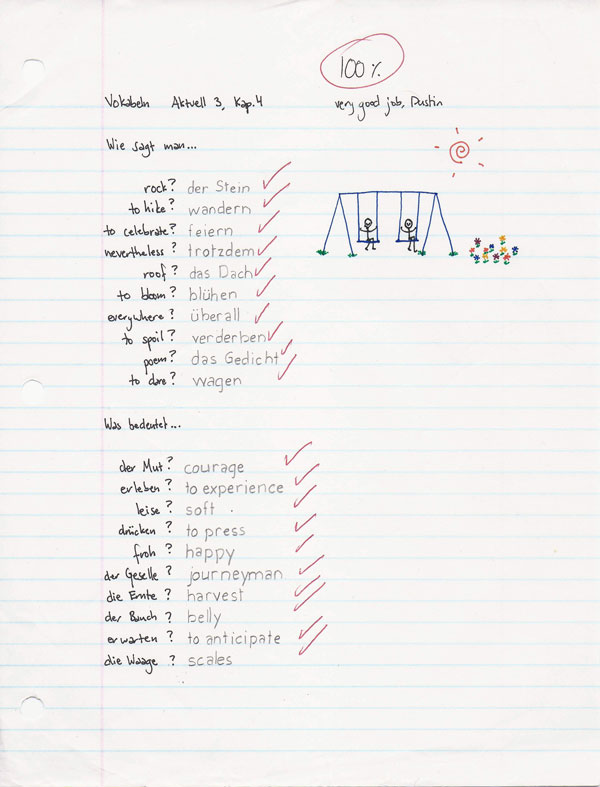 100%
Vokabeln Aktuell 3, Kap. 4 very good job, Dustin
Wie sagt man...
rock? der Stein
to hike? wandern
to celebrate? feiern
nevertheless? trotzdem
roof? das Dach
to bloom? blühen
everywhere? überall
to spoil? verderben
poem? das Gedicht
to dare? wagen
Was bedeutet...
der Mut? courage
erleben? to experience
leise? soft
drücken? to press
froh? happy
der Geselle? journeyman
die Ernte? harvest
der Bauch? belly
erwarten? to anticipate
die Waage? scales